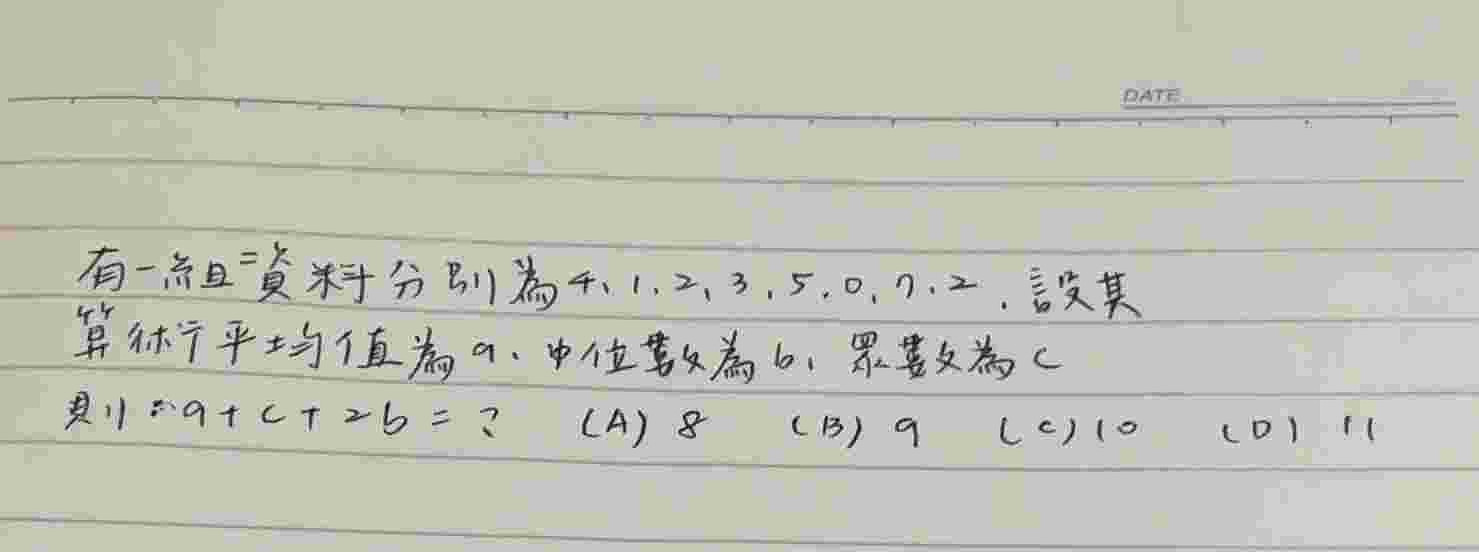 DATE
有一組資料分別為4、1、2、3、5、0、7、2、設其
算術平均值為a、中位數為b、眾數為c
則:a+c+2b=? (A) 8 (B) 9 (C) 10 (D) 11